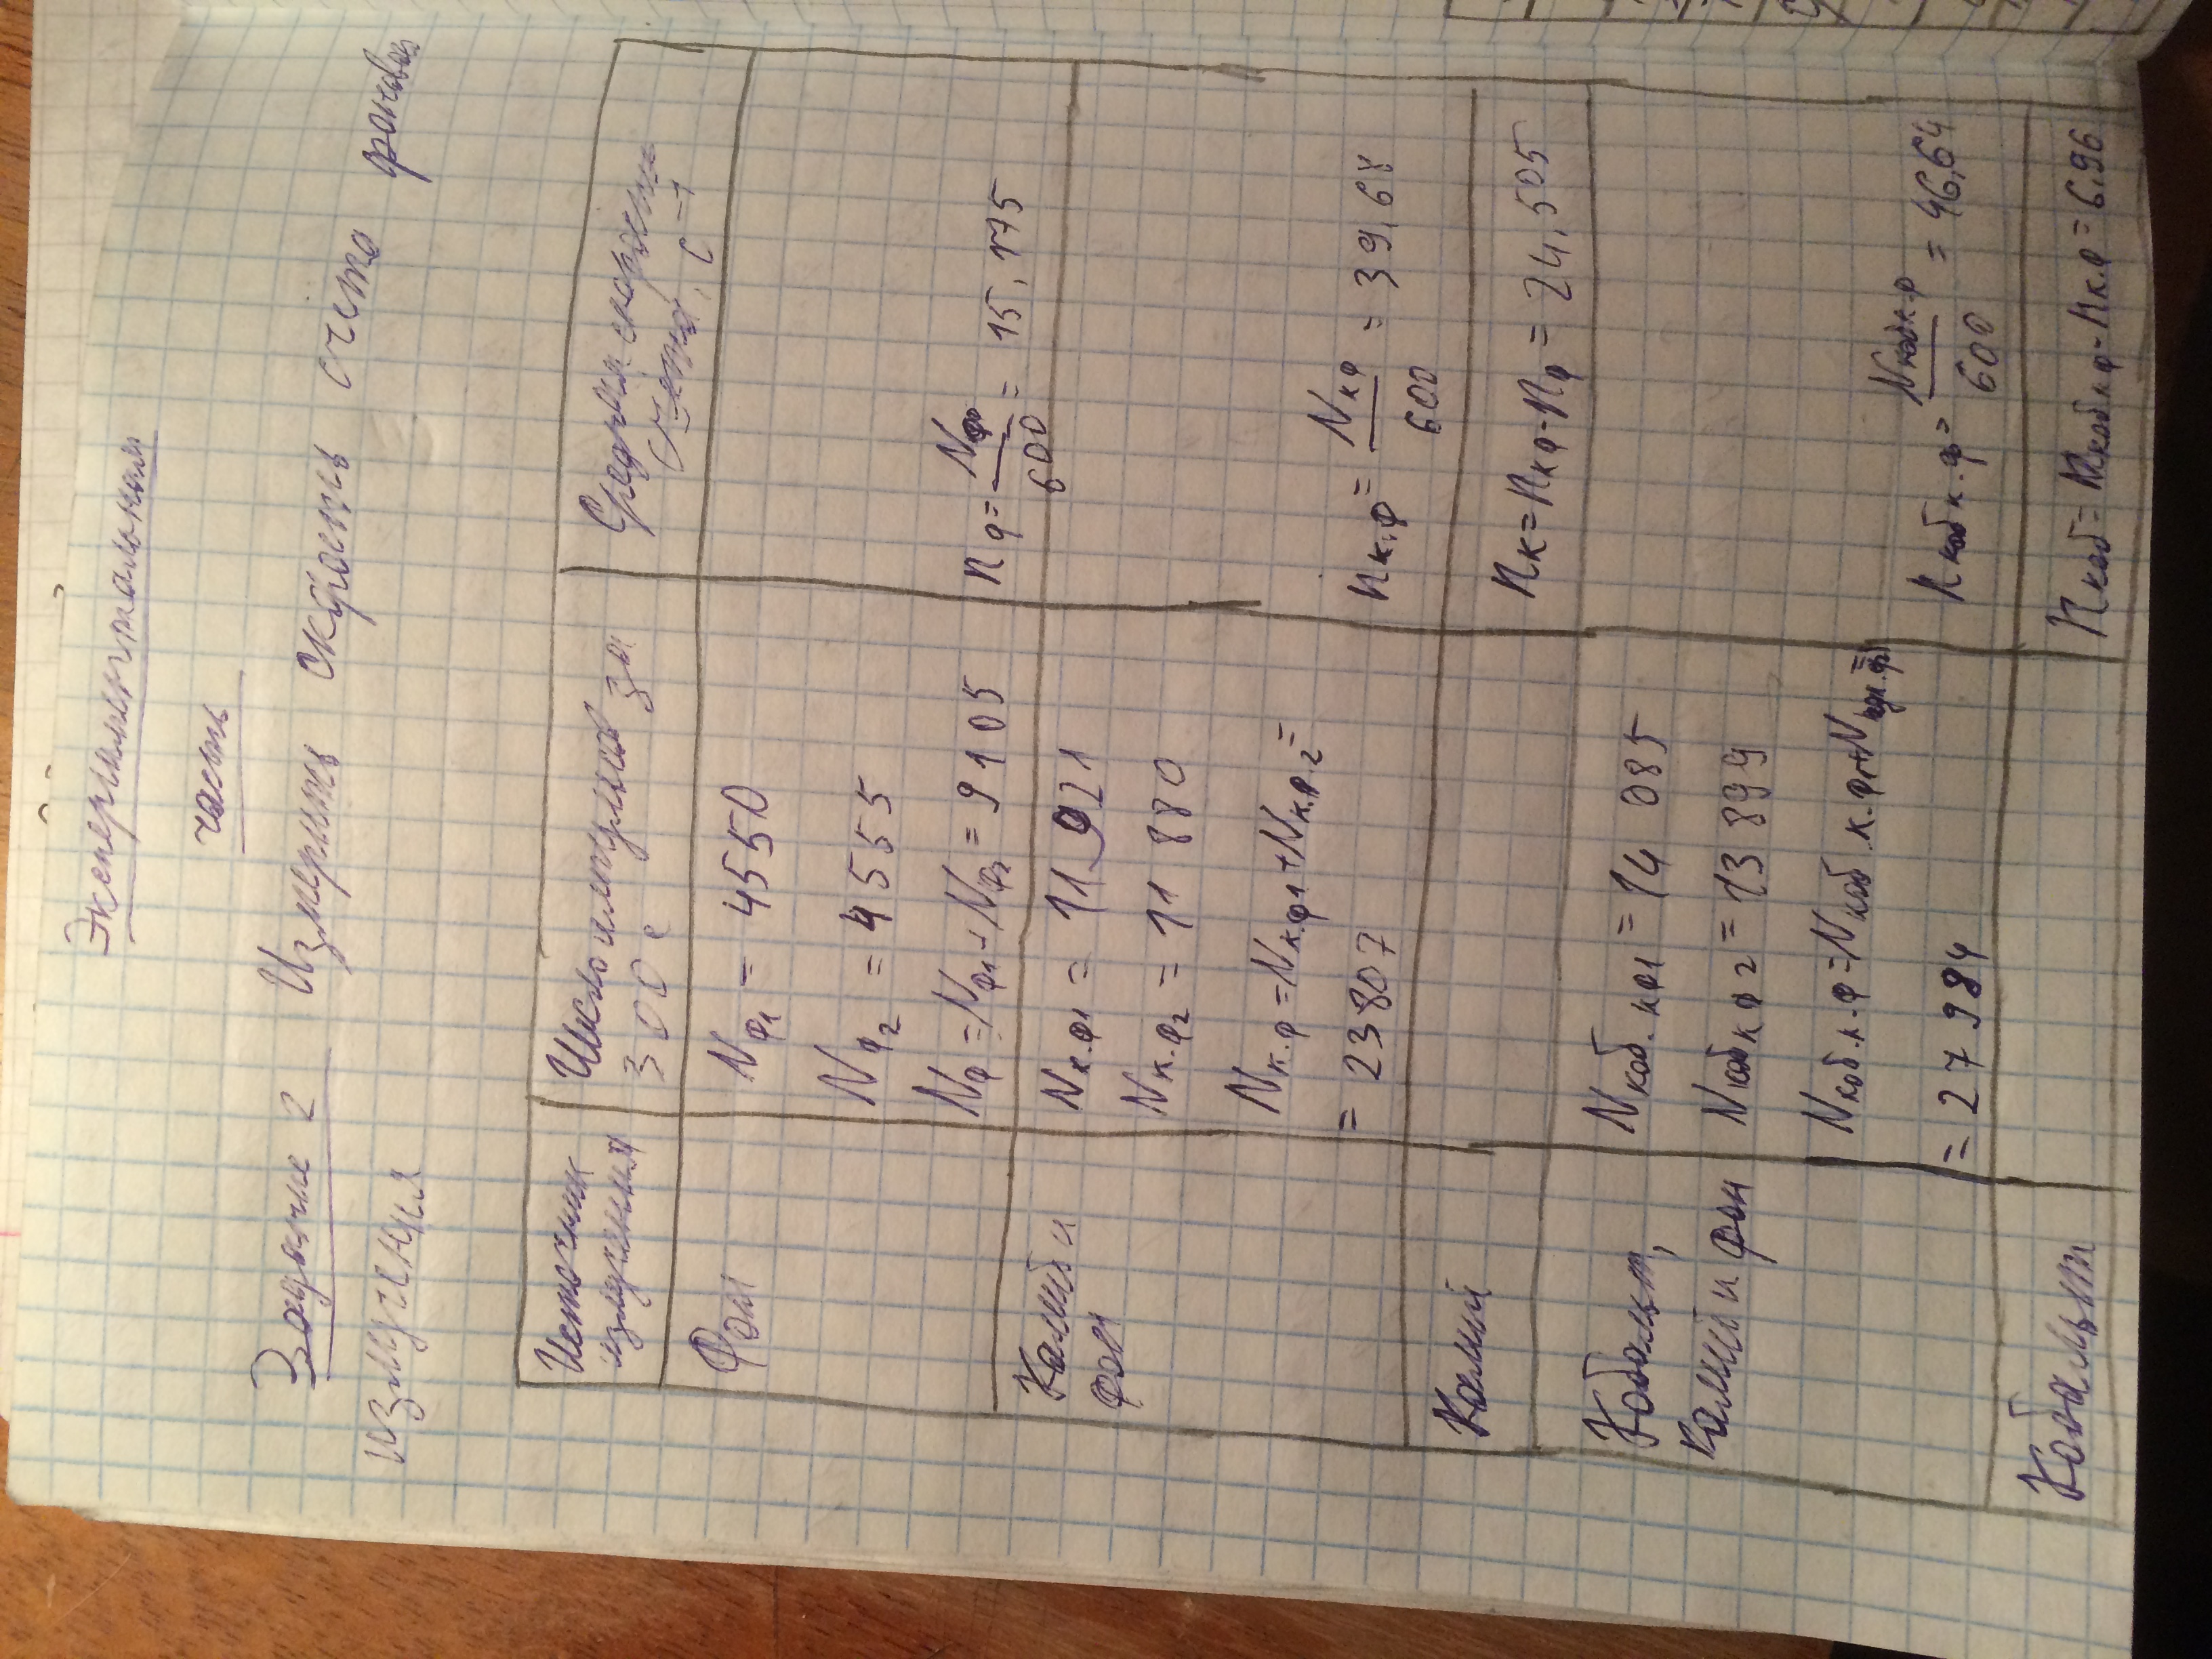 Экспериментальная
часть
Задание 2 Измерить скорость счёта фонового
излучения
Источник излучения
Число импульсов за 300 с
Средняя скорость счета, с⁻¹
Фон
Nф1 = 4550
Nф2 = 4555
Nф = Nф1 + Nф2 = 9105
nф = Nф/600 = 15,175
Калий и фон
Nк.ф1 = 11 921
Nк.ф2 = 11 880
Nк.ф = Nк.ф1 + Nк.ф.2 =
= 23807
nк.ф = Nкф/600 = 39,68
Калий
nк = nкф - nф = 24,505
Кобальт, калий и фон
Nкоб.кф1 = 14 085
Nкобкф2 = 13 899
Nкоб.к.ф = Nкоб.к.ф1 + Nкоб.к.ф2 =
= 27 984
nкобк.ф = Nкобк.ф/600 = 46,64
Кобальт
nкоб = nкобкф - nк.ф = 6,96